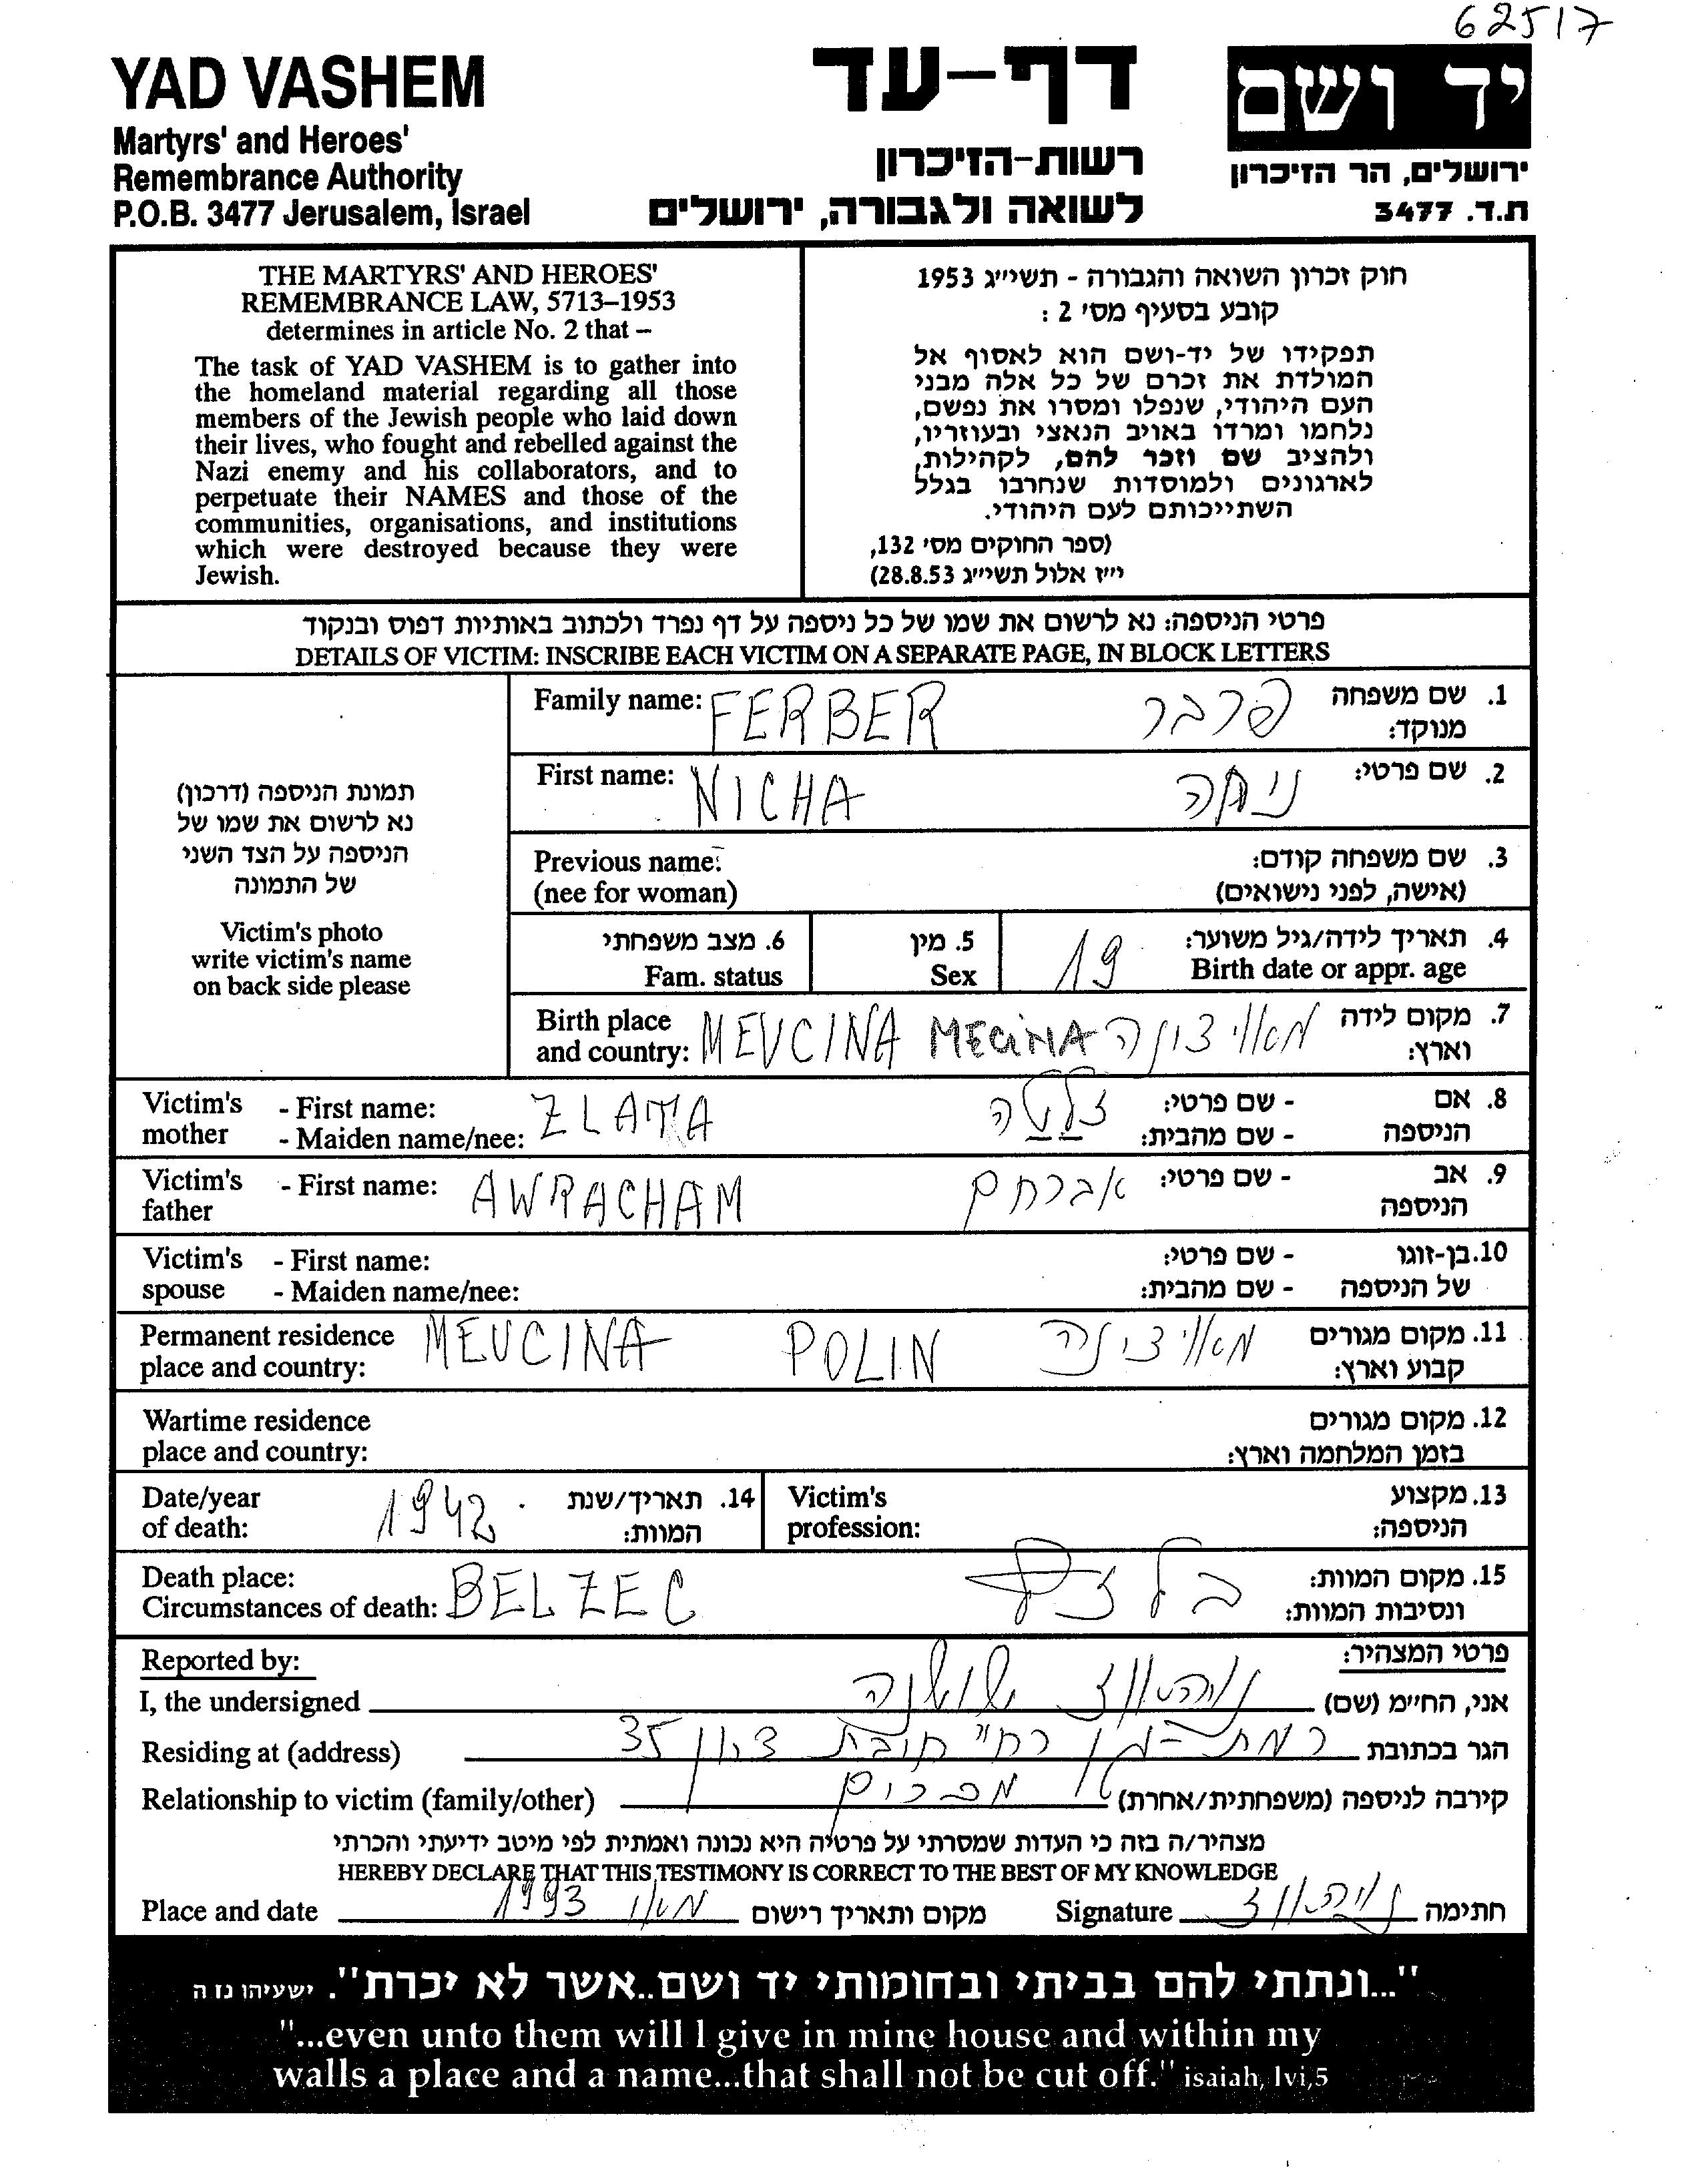 62517
YAD VASHEM
Martyrs' and Heroes'
Remembrance Authority
P.O.B. 3477 Jerusalem, Israel
דף-עד
רשות-הזיכרון
לשואה ולגבורה, ירושלים
יד ושם
ירושלים, הר הזיכרון
ת.ד. 3477
THE MARTYRS' AND HEROES'
REMEMBRANCE LAW, 5713–1953
determines in article No. 2 that –
The task of YAD VASHEM is to gather into
the homeland material regarding all those
members of the Jewish people who laid down
their lives, who fought and rebelled against the
Nazi enemy and his collaborators, and to
perpetuate their NAMES and those of the
communities, organisations, and institutions
which were destroyed because they were
Jewish.
חוק זכרון השואה והגבורה - תשי״ג 1953
קובע בסעיף מס׳ 2 :
תפקידו של יד-ושם הוא לאסוף אל
המולדת את זכרם של כל אלה מבני
העם היהודי, שנפלו ומסרו את נפשם,
נלחמו ומרדו באויב הנאצי ובעוזריו,
ולהציב שם וזכר להם, לקהילות,
לארגונים ולמוסדות שנחרבו בגלל
השתייכותם לעם היהודי.
(ספר החוקים מס׳ 132,
י״ז אלול תשי״ג 28.8.53)
פרטי הניספה: נא לרשום את שמו של כל ניספה על דף נפרד ולכתוב באותיות דפוס ובנקוד
DETAILS OF VICTIM: INSCRIBE EACH VICTIM ON A SEPARATE PAGE, IN BLOCK LETTERS
תמונת הניספה (דרכון)
נא לרשום את שמו של
הניספה על הצד השני
של התמונה
Victim's photo
write victim's name
on back side please
Family name: FERBER פרבר 1. שם משפחה
מנוקד:
First name: NICHA ניחה 2. שם פרטי:
Previous name: 3. שם משפחה קודם:
(nee for woman) (אישה, לפני נישואים)
6. מצב משפחתי 5. מין 19 4. תאריך לידה/גיל משוער:
Fam. status Sex Birth date or appr. age
Birth place MEVCINA MECINA מאוצינה 7. מקום לידה
and country: וארץ:
Victim's - First name: ZLATA זלטה - שם פרטי: 8. אם
mother - Maiden name/nee: - שם מהבית: הניספה
Victim's - First name: AWRACHAM אברהם - שם פרטי: 9. אב
father הניספה
Victim's - First name: - שם פרטי: 10. בן-זוגו
spouse - Maiden name/nee: - שם מהבית: של הניספה
Permanent residence MEUCINA POLIN מאוצינה 11. מקום מגורים
place and country: קבוע וארץ:
Wartime residence 12. מקום מגורים
place and country: בזמן המלחמה וארץ:
Date/year 1942 14. תאריך/שנת Victim's 13. מקצוע
of death: המוות: profession: הניספה:
Death place: BELZEC בלזץ 15. מקום המוות:
Circumstances of death: ונסיבות המוות:
Reported by: פרטי המצהיר:
I, the undersigned שושנה אני, החי״מ (שם)
Residing at (address) רמת-גן רח׳ חיבת ציון 35 הגר בכתובת
Relationship to victim (family/other) קירבה לניספה (משפחתית/אחרת)
מצהיר/ה בזה כי העדות שמסרתי על פרטיה היא נכונה ואמתית לפי מיטב ידיעתי והכרתי
HEREBY DECLARE THAT THIS TESTIMONY IS CORRECT TO THE BEST OF MY KNOWLEDGE
Place and date 1993 מאי מקום ותאריך רישום Signature חתימה
"...ונתתי להם בביתי ובחומותי יד ושם..אשר לא יכרת". ישעיהו נז ה
"...even unto them will I give in mine house and within my
walls a place and a name...that shall not be cut off." isaiah, lvi,5